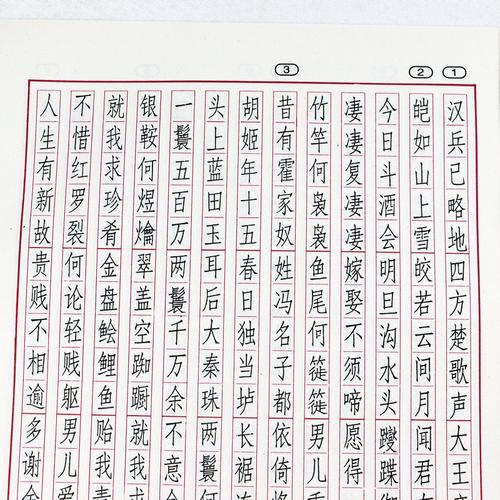 ③ ② ①
汉兵已略地四方楚歌声大王
皑如山上雪皎若云间月闻君
今日斗酒会明旦沟水头躞蹀
凄凄复凄凄嫁娶不须啼愿得
竹竿何袅袅鱼尾何簁簁男儿
昔有霍家奴姓冯名子都依倚
胡姬年十五春日独当垆长裾
头上蓝田玉耳后大秦珠两鬟何
一鬟五百万两鬟千万余不意
银鞍何煜爚翠盖空踟蹰就我
就我求珍肴金盘鲙鲤鱼贻我
不惜红罗裂何论轻贱躯男儿爱
人生有新故贵贱不相逾多谢